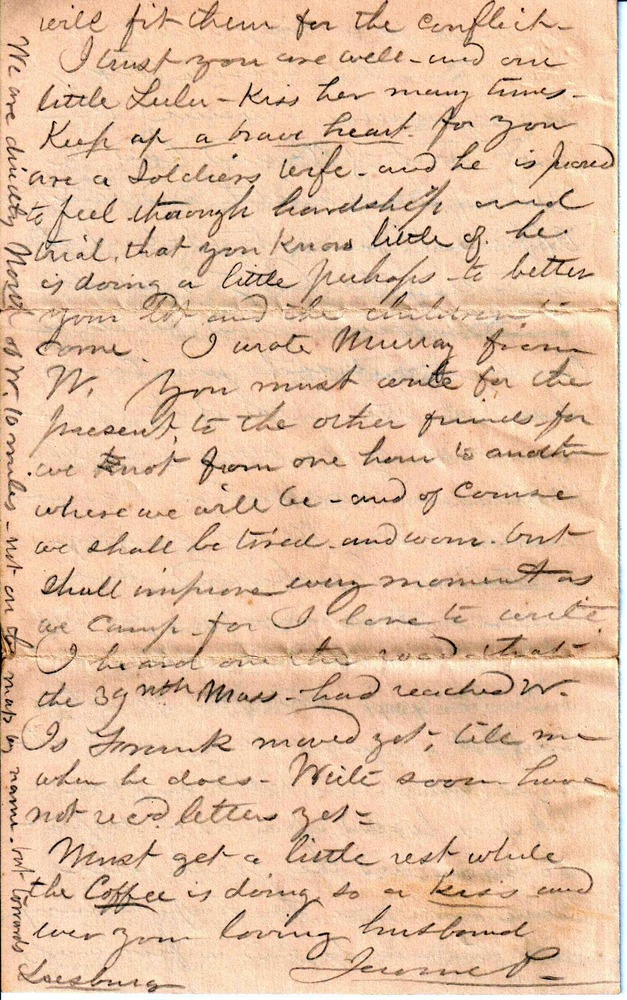 will fit them for the conflict-
I trust you are well - and our
little Lulu - Kiss her many times -
Keep up a brave heart. for you
are a Soldiers wife - and he is proud
to feel through hardship and
trial, that you know little of. he
is doing a little perhaps - to better
your lot and the children
come. I wrote Murray from
W. You must write for the
present, to the other friends for
we not from one hour to another
where we will be - and of course
we shall be tired - and worn - but
shall improve every moment as
we camp - for I love to write
I heard on the road - that -
the 39nth Mass - had reached W.
Is Frank moved yet, tell me
when he does - Write soon have
not recd letters yet -
Must get a little rest while
the Coffee is doing so a kiss and
ever your loving husband
Jerome
We are directly North of W. 10 miles - not on the map by name - but towards
Leesburg